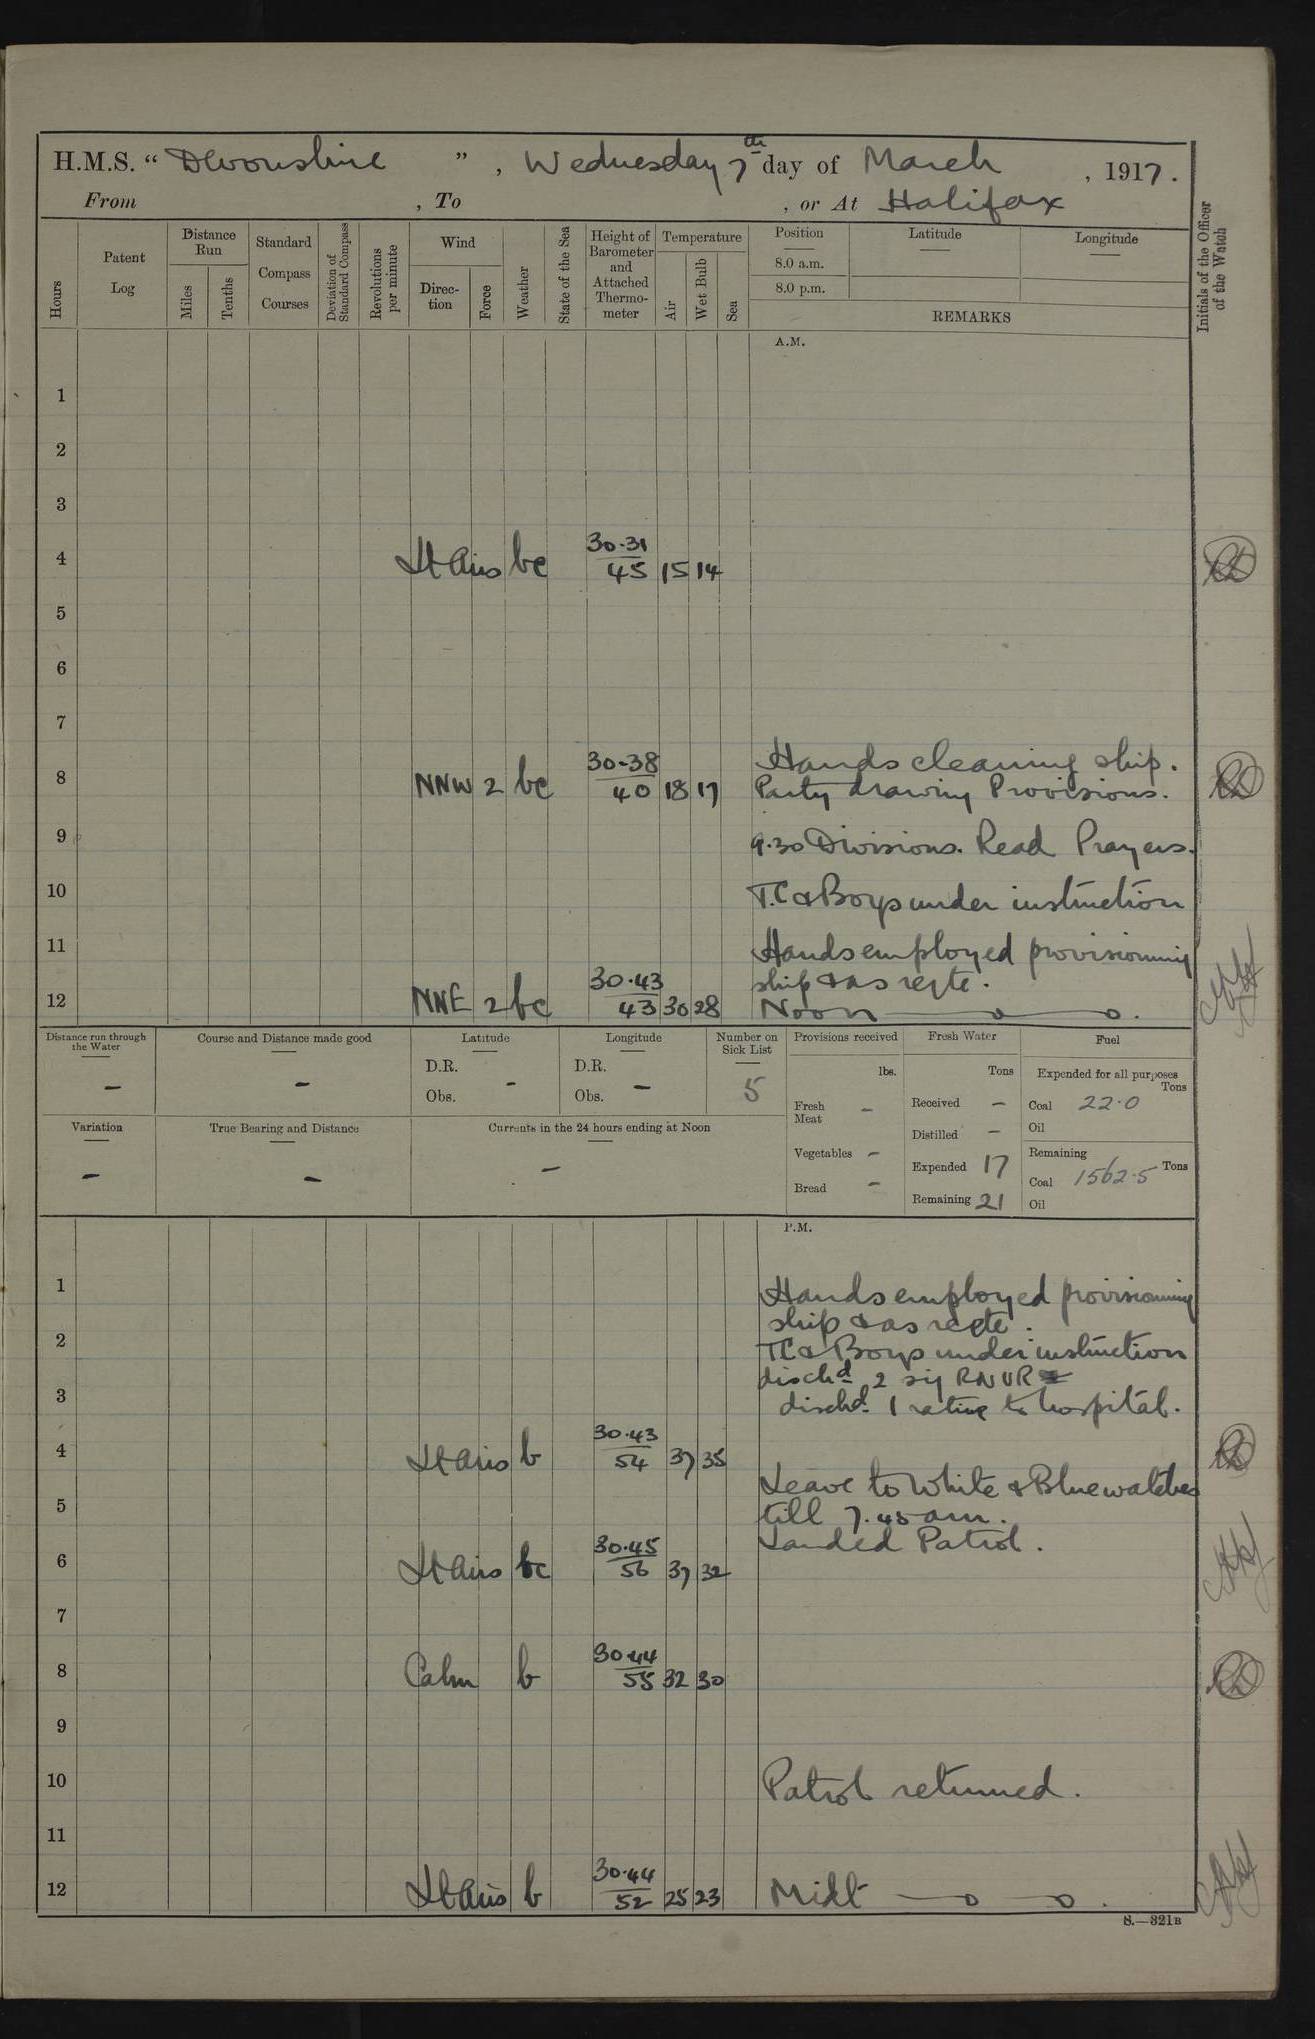 H.M.S. “ Devonshire ” , Wednesday 7th day of March , 1917.
From , To , or At Halifax
Hours
Patent Log
Distance Run
Miles
Tenths
Standard Compass Courses
Deviation of Standard Compass
Revolutions per minute
Wind
Direction
Force
Weather
State of the Sea
Height of Barometer and Attached Thermometer
Temperature
Air
Wet Bulb
Sea
Position
8.0 a.m.
8.0 p.m.
Latitude
Longitude
REMARKS
Initials of the Officer of the Watch
A.M.
1
2
3
4 Lt airs bc 30.31/45 15 14
5
6
7
Hands cleaning ship.
8 NNW 2 bc 30.38/40 18 17 Party drawing Provisions.
9 9.30 Divisions. Read Prayers.
10 T.C & Boys under instruction
11 Hands employed provisionning
ship & as reqte.
12 NNE 2 bc 30.43/43 30 28 Noon
Distance run through the Water
–
Course and Distance made good
–
Latitude
D.R.
Obs. –
Longitude
D.R.
Obs. –
Number on Sick List
5
Provisions received
lbs.
Fresh Meat –
Vegetables –
Bread –
Fresh Water
Tons
Received –
Distilled –
Expended 17
Remaining 21
Fuel
Expended for all purposes
Tons
Coal 22.0
Oil
Remaining
Coal 1562.5 Tons
Oil
Variation
–
True Bearing and Distance
–
Currents in the 24 hours ending at Noon
–
P.M.
1 Hands employed provisionning
ship & as reqte.
2 TC & Boys under instruction
dischd 2 sig RNVR
3 dischd 1 rating to hospital.
4 Lt airs b 30.43/54 37 35
Leave to White & Blue watches
5 till 7.45 am.
Landed Patrol.
6 Lt airs bc 30.45/56 37 32
7
8 Calm b 30.44/55 32 30
9
10 Patrol returned.
11
12 Lt airs b 30.44/52 25 23 Midt
S.—321B